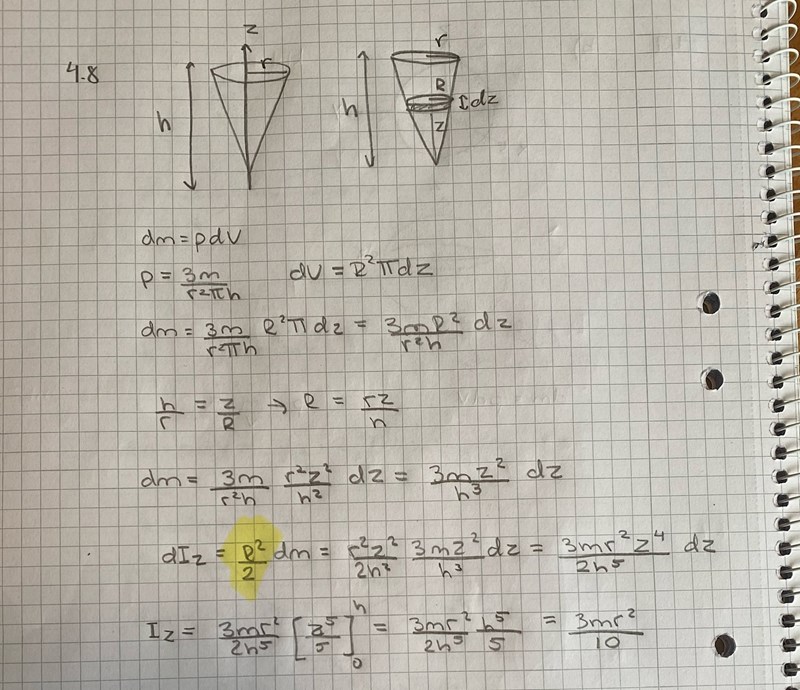 4.8
z
r
h
r
R
I dz
h
z
dm = ρdV
ρ = 3m/r²πh dV = R²πdz
dm = 3m/r²πh R²πdz = 3mR²/r²h dz
h/r = z/R → R = rz/h
dm = 3m/r²h r²z²/h² dz = 3mz²/h³ dz
dIz = R²/2 dm = r²z²/2h² 3mz²/h³ dz = 3mr²z⁴/2h⁵ dz
Iz = 3mr²/2h⁵ [z⁵/5]₀ʰ = 3mr²/2h⁵ h⁵/5 = 3mr²/10